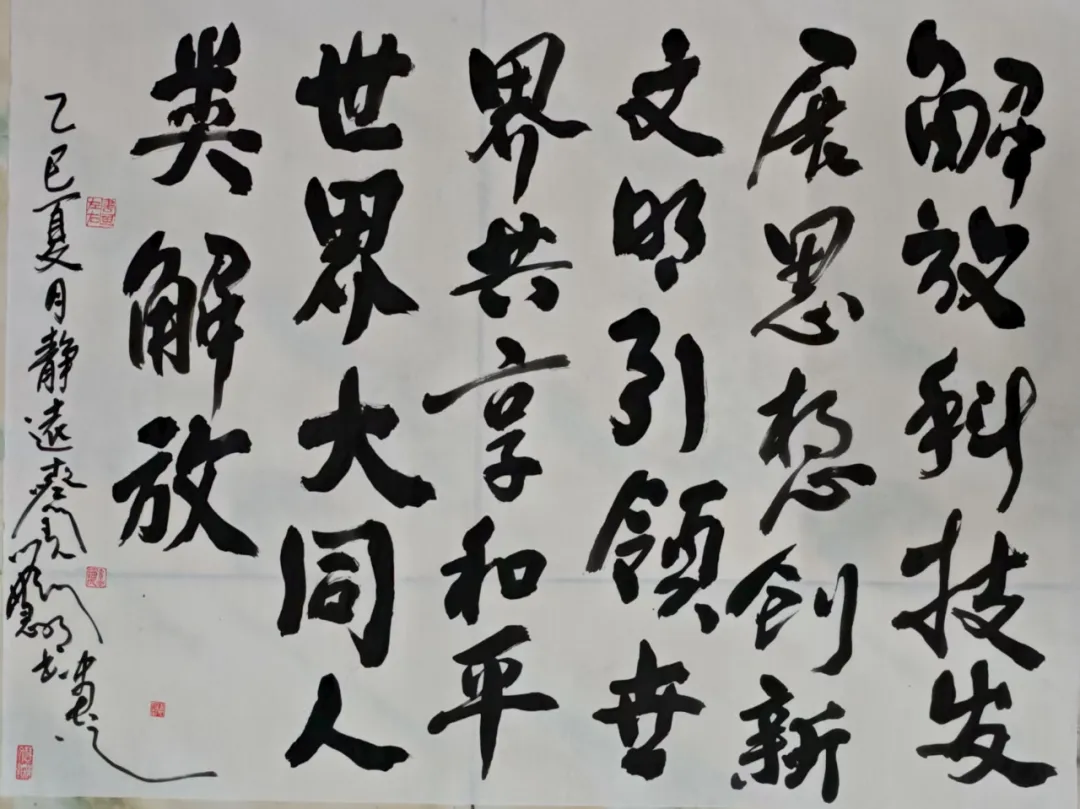 解放科技发
展思想创新
文明引领世
界共享和平
世界大同人
类解放
乙巳夏月静远